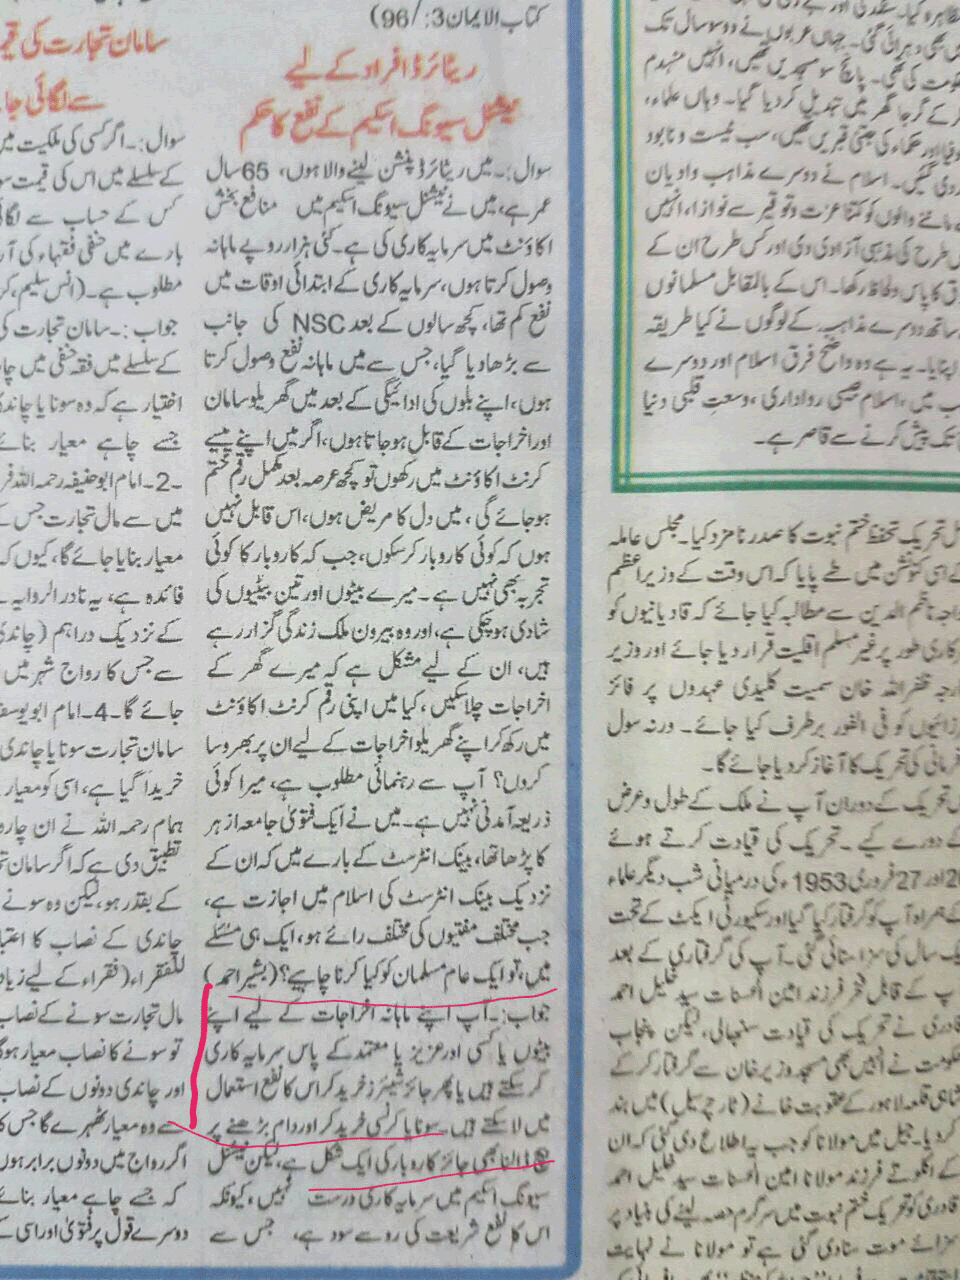 کتاب الایمان: 3/96)
ریٹائرڈ افراد کے لیے
نیشنل سیونگ اسکیم کے نفع کا حکم
سوال:۔ میں ریٹائرڈ پنشن لینے والا ہوں، 65 سال
عمر ہے، میں نے نیشنل سیونگ اسکیم میں منافع بخش
اکاؤنٹ میں سرمایہ کاری کی ہے۔ کئی ہزار روپے ماہانہ
وصول کرتا ہوں، سرمایہ کاری کے ابتدائی اوقات میں
نفع کم تھا، کچھ سالوں کے بعد NSC کی جانب
سے بڑھا دیا گیا، جس سے میں ماہانہ نفع وصول کرتا
ہوں، اپنے بلوں کی ادائیگی کے بعد میں گھریلو سامان
اور اخراجات کے قابل ہو جاتا ہوں، اگر میں اپنے پیسے
کرنٹ اکاؤنٹ میں رکھوں تو کچھ عرصہ بعد مکمل رقم ختم
ہو جائے گی، میں دل کا مریض ہوں، اس قابل نہیں
ہوں کہ کوئی کاروبار کر سکوں، جب کہ کاروبار کا کوئی
تجربہ بھی نہیں ہے۔ میرے بیٹوں اور تین بیٹیوں کی
شادی ہو چکی ہے، اور وہ بیرون ملک زندگی گزار رہے
ہیں، ان کے لیے مشکل ہے کہ میرے گھر کے
اخراجات چلا سکیں، کیا میں اپنی رقم کرنٹ اکاؤنٹ
میں رکھ کر اپنے گھریلو اخراجات کے لیے ان پر بھروسا
کروں؟ آپ سے رہنمائی مطلوب ہے، میرا کوئی
ذریعہ آمدنی نہیں ہے۔ میں نے ایک فتویٰ جامعہ ازہر
کا پڑھا تھا، بینک انٹرسٹ کے بارے میں کہ ان کے
نزدیک بینک انٹرسٹ کی اسلام میں اجازت ہے،
جب مختلف مفتیوں کی مختلف رائے ہو، ایک ہی مسئلے
میں، تو ایک عام مسلمان کو کیا کرنا چاہیے؟ (بشیر احمد)
جواب:۔ آپ اپنے ماہانہ اخراجات کے لیے اپنے
بیٹوں یا کسی اور عزیز یا معتمد کے پاس سرمایہ کاری
کر سکتے ہیں یا پھر جائز شیئرز خرید کر اس کا نفع استعمال
میں لا سکتے ہیں۔ سونا یا کرنسی خرید کر اور دام بڑھنے پر
بیچ ڈالنا بھی جائز کاروبار کی ایک شکل ہے، لیکن نیشنل
سیونگ اسکیم میں سرمایہ کاری درست نہیں، کیونکہ
اس کا نفع شریعت کی رو سے سود ہے، جس سے
سامان تجارت کی
سے لگائی جا
سوال:۔ اگر کسی کی ملکیت میں
کے سلسلے میں اس کی قیمت
کس کے حساب سے
بارے میں حنفی فقہاء کی
مطلوب ہے۔ (انس سلیم،
جواب:۔ سامان تجارت کی
کے سلسلے میں فقہ حنفی میں
اختیار ہے کہ وہ سونا یا
جسے چاہے معیار بنائے
۔2۔ امام ابوحنیفہ رحمہ اللہ
میں سے مال تجارت جس
معیار بنایا جائے گا، کیوں کہ
فائدہ ہے، یہ نادر الروایہ
کے نزدیک دراہم (
سے جس کا رواج شہر میں
جائے گا۔ 4۔ امام ابو یوسف
سامان تجارت سونا یا چاندی
خریدا گیا ہے، اسی کو معیار
ہمام رحمہ اللہ نے ان
تطبیق دی ہے کہ اگر سامان
کے بقدر ہو، لیکن وہ سونے
چاندی کے نصاب کا
للفقراء (فقراء کے لیے
مال تجارت سونے کے نصاب
تو سونے کا نصاب معیار
اور چاندی دونوں کے نصاب
سے وہ معیار ٹھہرے گا جس کا
اگر رواج میں دونوں برابر ہوں
کہ جسے چاہے معیار بنائے
دوسرے قول پر فتویٰ اور اسی
بھی دہرائی گئی۔ جہاں عربوں نے دو سو سال تک
حکومت کی تھی۔ پانچ سو مسجدیں تھیں، انہیں منہدم
کر کے گرجا گھر میں تبدیل کر دیا گیا۔ وہاں علماء،
اور حکماء کی جتنی قبریں تھیں، سب نیست و نابود
گئیں۔ اسلام نے دوسرے مذاہب وادیان
ماننے والوں کو کتنا عزت و توقیر سے نوازا، انہیں
طرح کی مذہبی آزادی دی اور کس طرح ان کے
کا پاس و لحاظ رکھا۔ اس کے بالمقابل مسلمانوں
ساتھ دوسرے مذاہب کے لوگوں نے کیا طریقہ
اپنایا۔ یہ ہے وہ واضح فرق اسلام اور دوسرے
میں، اسلام جیسی رواداری، وسعت قلبی دنیا
تک پیش کرنے سے قاصر ہے۔
تحریک تحفظ ختم نبوت کا صدر نامزد کیا۔ مجلس عاملہ
اسی کنونشن میں طے پایا کہ اس وقت کے وزیر اعظم
ناظم الدین سے مطالبہ کیا جائے کہ قادیانیوں کو
طور پر غیر مسلم اقلیت قرار دیا جائے اور وزیر
ظفر اللہ خان سمیت کلیدی عہدوں پر فائز
کو فی الفور برطرف کیا جائے۔ ورنہ سول
نافرمانی کی تحریک کا آغاز کر دیا جائے گا۔
تحریک کے دوران آپ نے ملک کے طول و عرض
کے دورے کیے۔ تحریک کی قیادت کرتے ہوئے
اور 27 فروری 1953ء کی درمیانی شب دیگر علماء
کے ہمراہ آپ کو گرفتار کیا گیا اور سکیورٹی ایکٹ کے تحت
ایک سال کی سزا سنائی گئی۔ آپ کی گرفتاری کے بعد
آپ کے قابل فخر فرزند امین الحسنات سید خلیل احمد
قادری نے تحریک کی قیادت سنبھالی، لیکن پنجاب
حکومت نے انہیں بھی مسجد وزیر خان سے گرفتار کر کے
شاہی قلعہ لاہور کے عقوبت خانے (ٹارچر سیل) میں بند
کر دیا۔ جیل میں مولانا کو جب یہ اطلاع دی گئی کہ ان
کے اکلوتے فرزند مولانا امین الحسنات سید خلیل احمد
قادری کو تحریک ختم نبوت میں سرگرم حصہ لینے کی بنیاد پر
سزائے موت سنا دی گئی ہے تو مولانا نے نہایت